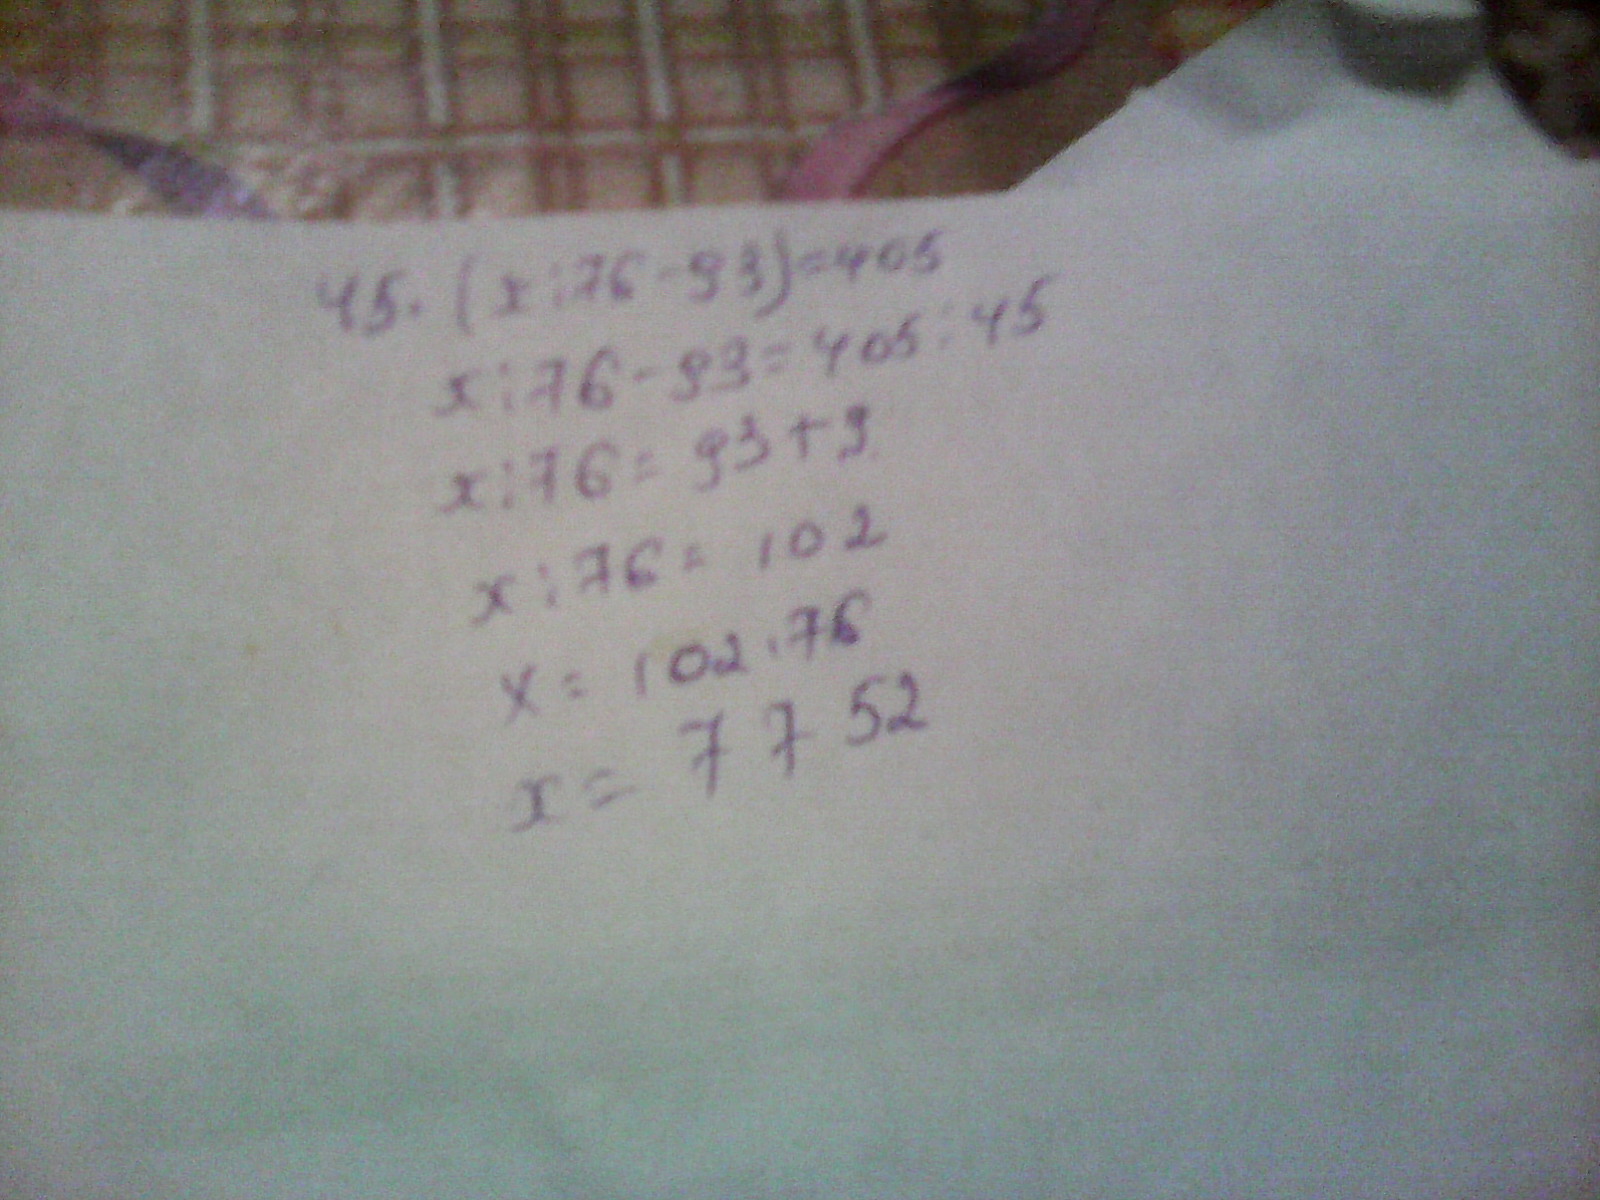 45·(x:76-93)=405
x:76-93=405:45
x:76=93+9
x:76=102
x=102·76
x=7752